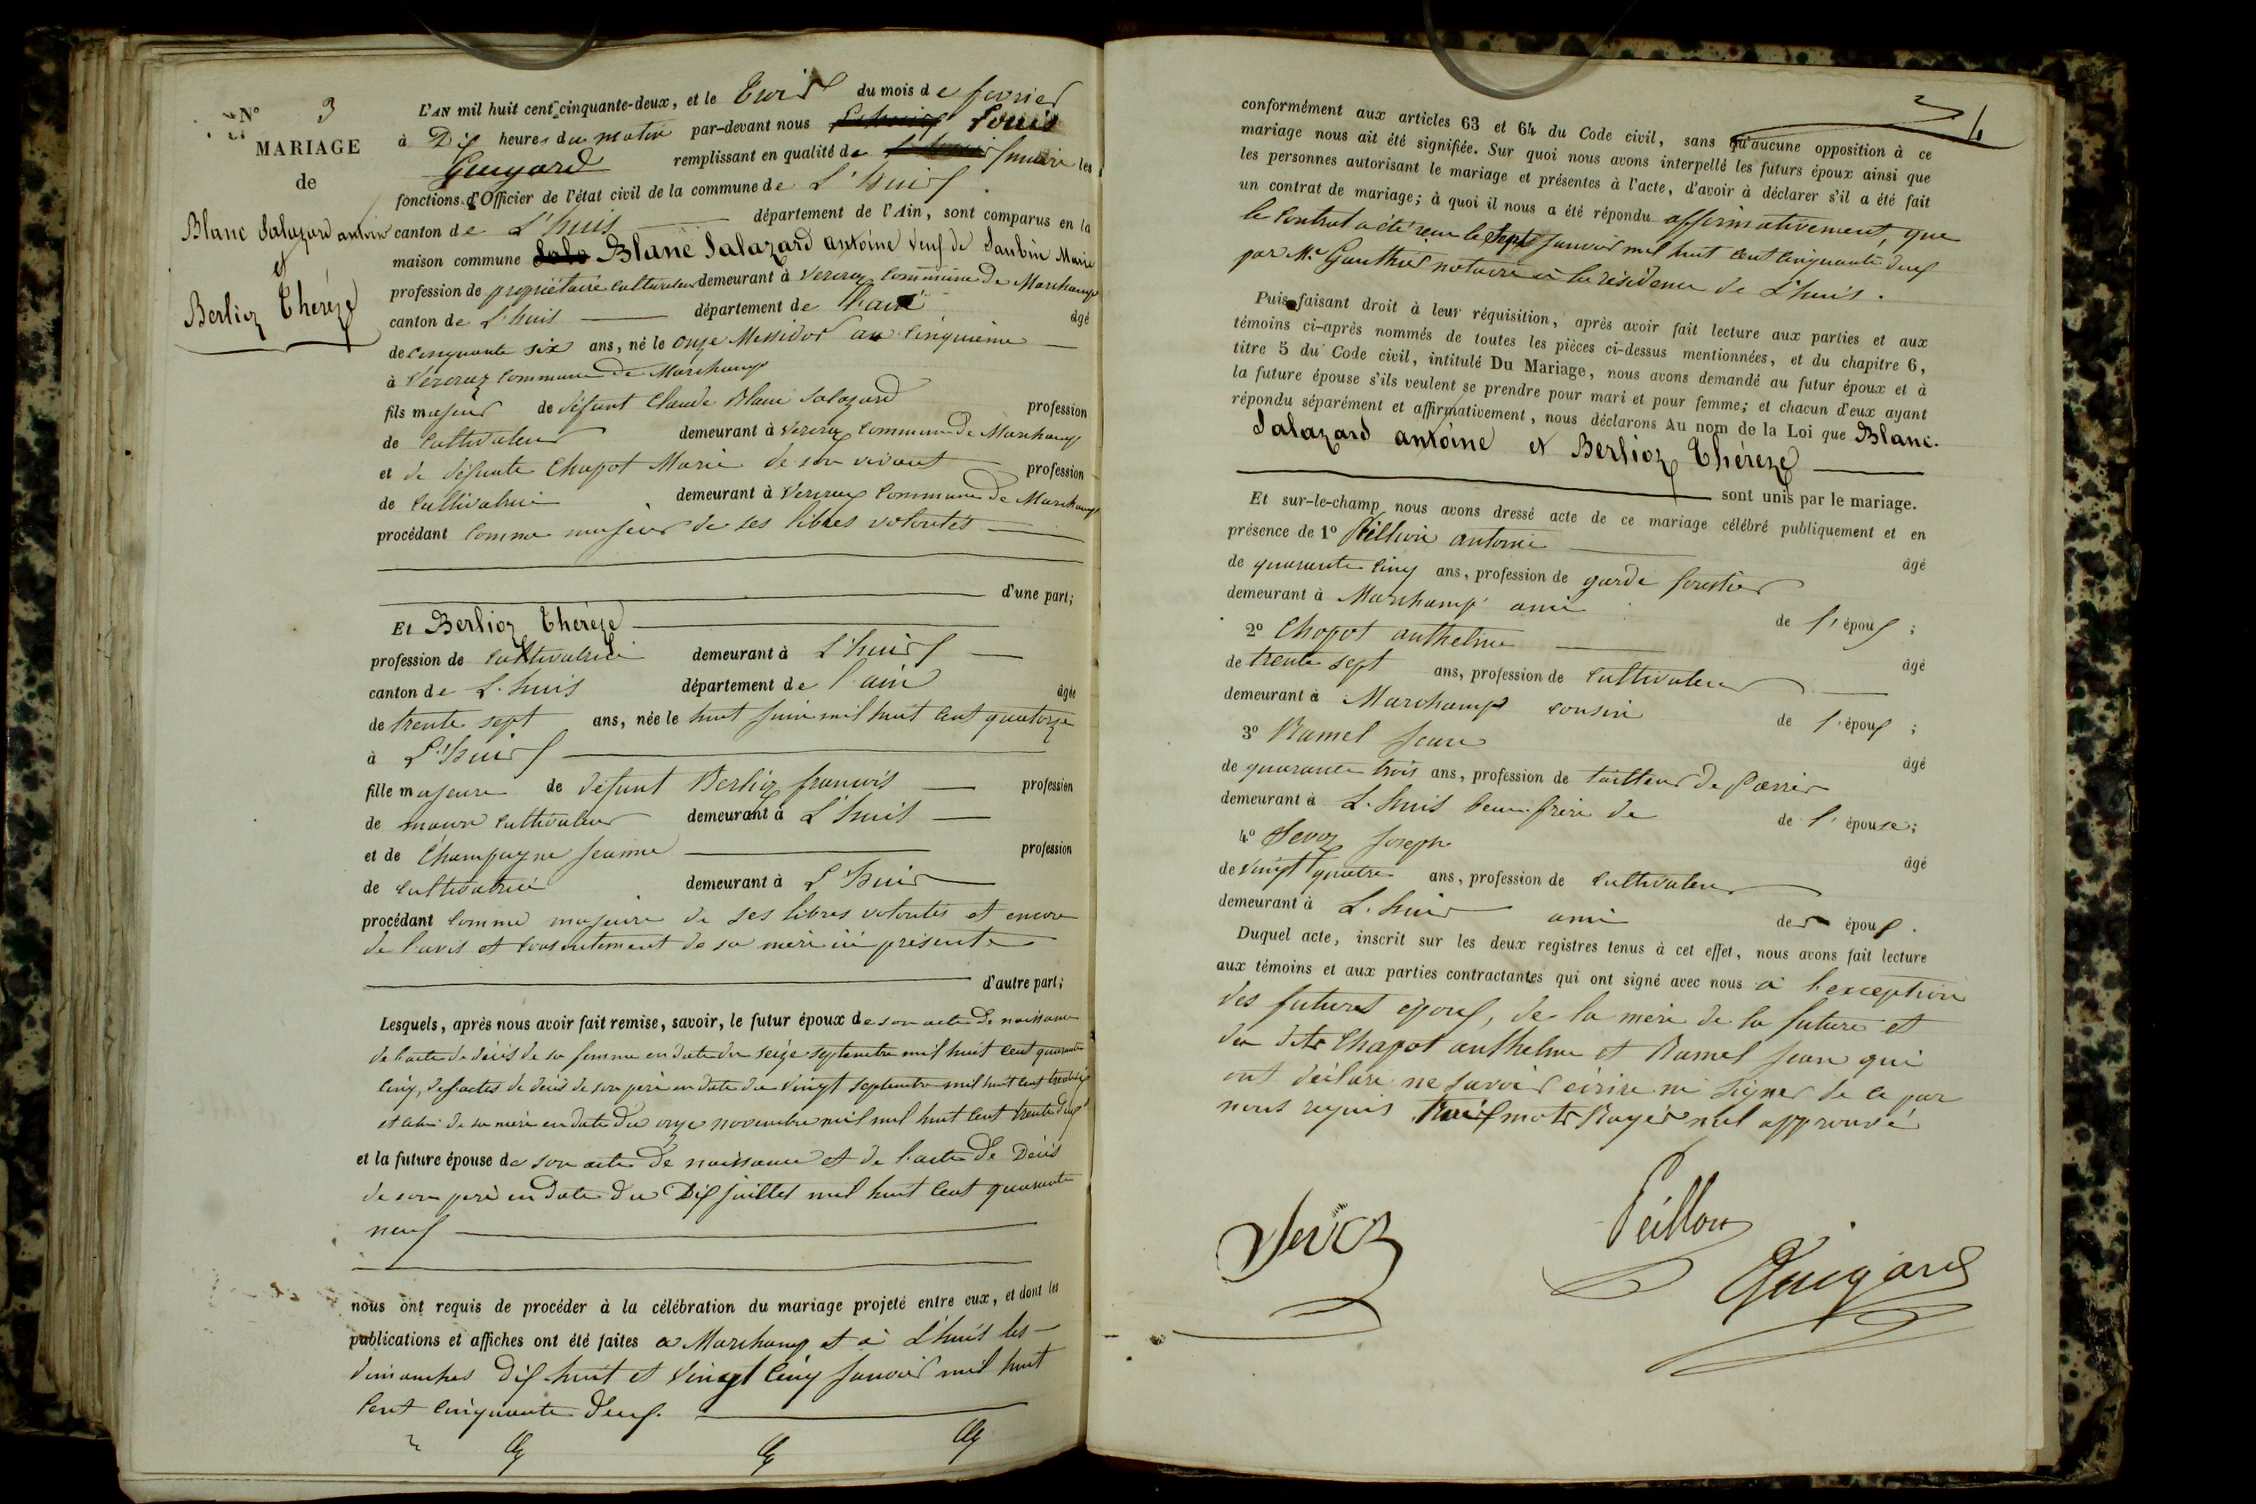 N° 3
MARIAGE
de
Blanc Salazard antoine
et
Berlioz Thérèze
L'AN mil huit cent cinquante-deux, et le Trois du mois de fevrier
à Dix heures du matin par-devant nous Louis
Guigard remplissant en qualité de maire les
fonctions d'Officier de l'état civil de la commune de L'huis
canton de L'huis département de l'Ain, sont comparus en la
maison commune Blanc Salazard antoine veuf de Marie
profession de propriétaire cultivateur demeurant à commune de Marchamp
canton de L'huis département de l'ain âgé
de cinquante six ans, né le onze Messidor an Cinquième
à commune de Marchamp
fils majeur de défunt Claude Blanc Salazard profession
de Cultivateur demeurant à commune de Marchamp
et de défunte Chapot Marie de son vivant profession
de cultivatrice demeurant à commune de Marchamp
procédant comme majeur de ses libres volontés
d'une part;
Et Berlioz Thérèze
profession de cultivatrice demeurant à L'huis
canton de L'huis département de l'ain âgée
de trente sept ans, née le huit juin mil huit cent quatorze
à L'huis
fille majeure de défunt Berlioz francois profession
de cultivateur demeurant à L'huis
et de Champagne Jeanne profession
de cultivatrice demeurant à L'huis
procédant comme majeure de ses libres volontés et encore
de l'avis et consentement de sa mère ici présente
d'autre part;
Lesquels, après nous avoir fait remise, savoir, le futur époux de son acte de naissance
de l'acte de décès de sa femme en date du seize septembre mil huit cent quarante
cinq, des actes de décès de son père en date du vingt septembre mil huit cent
et celui de sa mère en date du onze novembre mil mil huit cent trente deux
et la future épouse de son acte de naissance et de l'acte de Décès
de son père en date du Dix juillet mil huit cent quarante
neuf
nous ont requis de procéder à la célébration du mariage projeté entre eux, et dont les
publications et affiches ont été faites a Marchamp et à L'huis les
dimanches dix huit et vingt cinq janvier mil huit
cent cinquante deux.
conformément aux articles 63 et 64 du Code civil, sans qu'aucune opposition à ce
mariage nous ait été signifiée. Sur quoi nous avons interpellé les futurs époux ainsi que
les personnes autorisant le mariage et présentes à l'acte, d'avoir à déclarer s'il a été fait
un contrat de mariage; à quoi il nous a été répondu affirmativement, que
le Contrat a été recu le sept janvier mil huit cent cinquante deux
par Me Gauthier notaire à la résidence de L'huis.
Puis faisant droit à leur réquisition, après avoir fait lecture aux parties et aux
témoins ci-après nommés de toutes les pièces ci-dessus mentionnées, et du chapitre 6,
titre 5 du Code civil, intitulé Du Mariage, nous avons demandé au futur époux et à
la future épouse s'ils veulent se prendre pour mari et pour femme; et chacun d'eux ayant
répondu séparément et affirmativement, nous déclarons Au nom de la Loi que Blanc.
Salazard antoine et Berlioz Thérèze
sont unis par le mariage.
Et sur-le-champ nous avons dressé acte de ce mariage célébré publiquement et en
présence de 1° Peillon antoine âgé
de quarante cinq ans, profession de garde forestier
demeurant à Marchamp ami de l'époux ;
2° Chapot anthelme âgé
de trente sept ans, profession de cultivateur
demeurant à Marchamp cousin de l'époux ;
3° Ramel Jean âgé
de quarante trois ans, profession de tailleur de pierre
demeurant à L'huis beau-frère de de l'épouse;
4° Joseph âgé
de vingt quatre ans, profession de cultivateur
demeurant à L'huis ami des époux.
Duquel acte, inscrit sur les deux registres tenus à cet effet, nous avons fait lecture
aux témoins et aux parties contractantes qui ont signé avec nous à l'exception
des futurs époux, de la mère de la future et
des dits Chapot anthelme et Ramel Jean qui
ont déclaré ne savoir écrire ni signer de ce par
nous requis trois mots Rayés nul approuvé
Peillon
Guigard